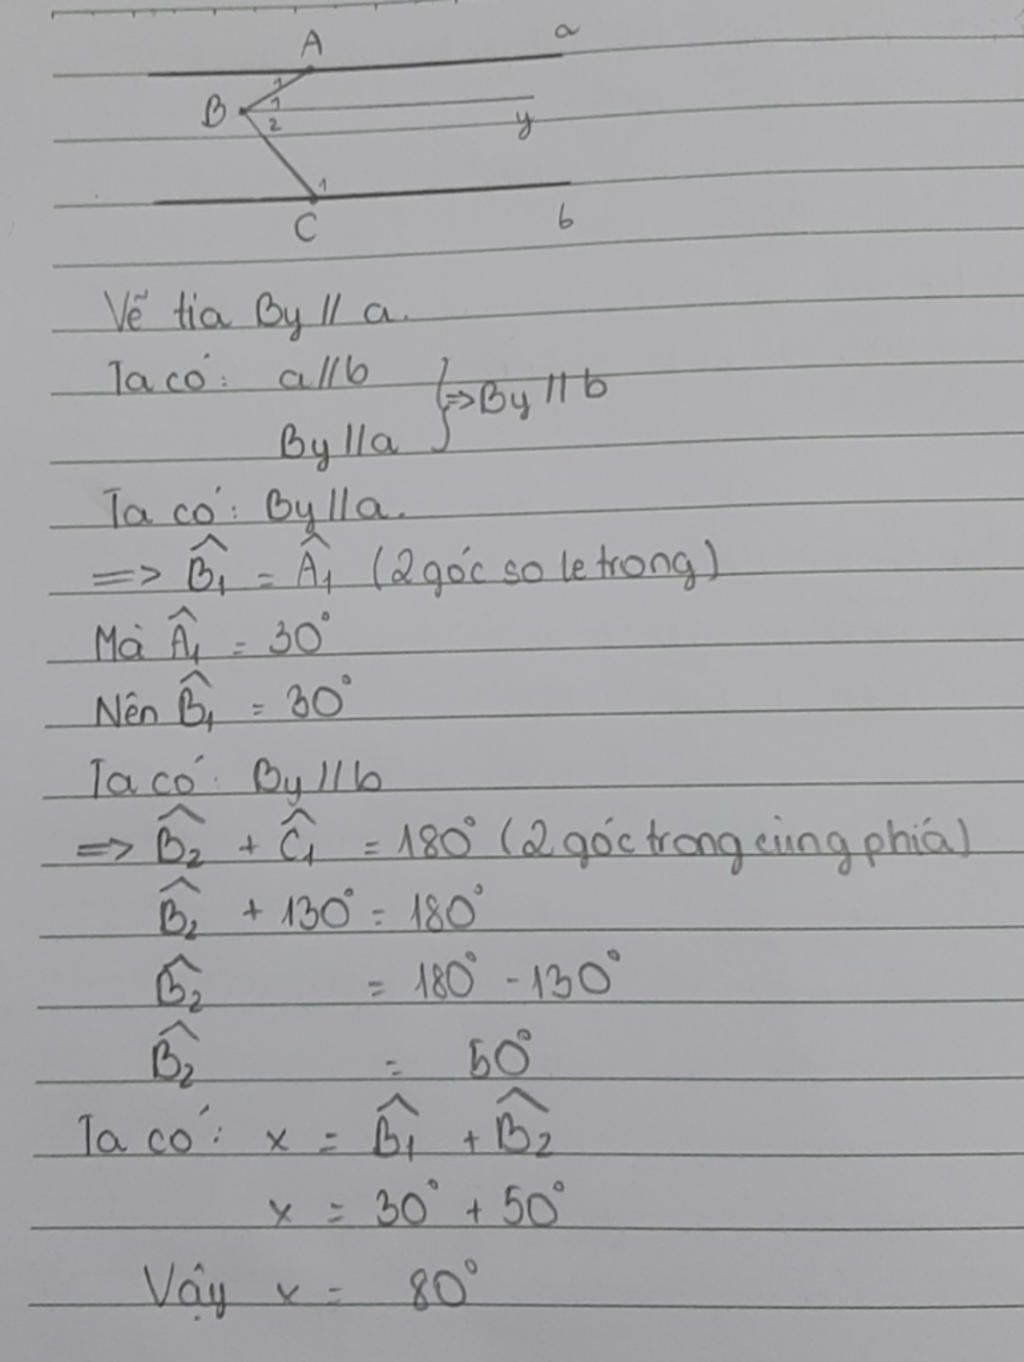 A a
1
B 1
2 y
1
C b
Vẽ tia By // a.
Ta có: a//b
By//a } => By // b
Ta có: By//a.
=> B̂₁ = Â₁ (2 góc so le trong)
Mà Â₁ = 30°
Nên B̂₁ = 30°
Ta có: By // b
=> B̂₂ + Ĉ₁ = 180° (2 góc trong cùng phiá)
B̂₂ + 130° = 180°
B̂₂ = 180° - 130°
B̂₂ = 50°
Ta có: x = B̂₁ + B̂₂
x = 30° + 50°
Vậy x = 80°